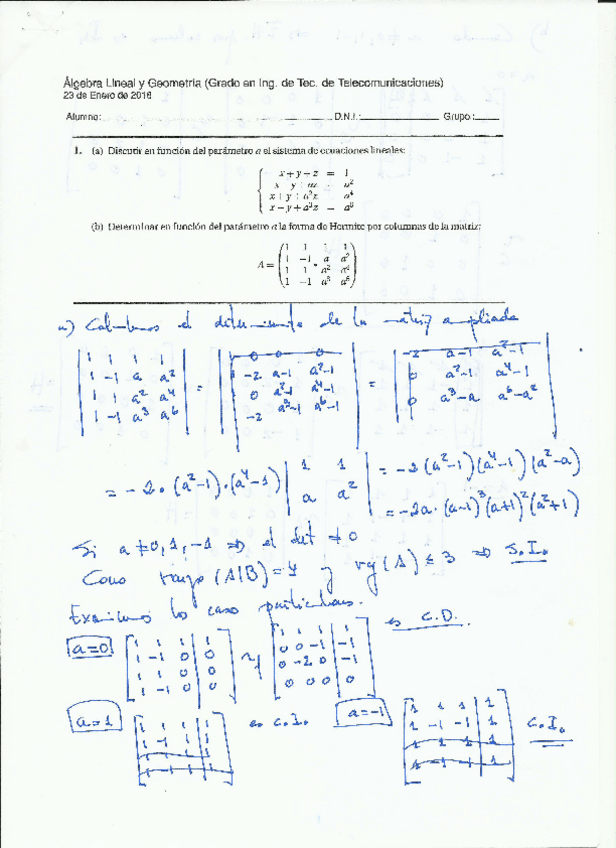 Álgebra Lineal y Geometría (Grado en Ing. de Tec. de Telecomunicaciones)
23 de Enero de 2016
Alumno: D.N.I.: Grupo:
1. (a) Discutir en función del parámetro a el sistema de ecuaciones lineales:
x + y + z = 1
x − y + az = a²
x + y + a²z = a⁴
x − y + a³z = a⁶
(b) Determinar en función del parámetro a la forma de Hermite por columnas de la matriz:
1 1 1 1
1 −1 a a²
A = 1 1 a² a⁴
1 −1 a³ a⁶
a) Calculamos el determinante de la matriz ampliada
| 1 1 1 1 | | 0 0 0 | | -2 a-1 a²-1 |
| 1 -1 a a² | = | -2 a-1 a²-1 | = | 0 a²-1 a⁴-1 |
| 1 1 a² a⁴ | | 0 a²-1 a⁴-1 | | 0 a³-a a⁶-a² |
| 1 -1 a³ a⁶ | | -2 a³-1 a⁶-1 |
= -2·(a²-1)·(a⁴-1) | 1 1 | = -2(a²-1)(a⁴-1)(a²-a)
| a a² | = -2a·(a-1)³(a+1)²(a²+1)
Si a≠0,1,-1 ⇒ el det ≠0
Como rango(A|B)=4 y rg(A) ≤ 3 ⇒ S.I.
Examinamos los caso particulares.
a=0 [1 1 1 | 1] ~ [1 1 1 | 1] es C.D.
[1 -1 0 | 0] [0 0 -1 | -1]
[1 1 0 | 0] [0 -2 0 | -1]
[1 -1 0 | 0] [0 0 0 0]
a=1 [1 1 1 | 1] es C.I. a=-1 [1 1 1 | 1] C.I.
[1 -1 1 | 1] [1 -1 -1 | 1]
[1 1 1 | 1] [1 1 1 | 1]
[1 -1 1 | 1] [1 -1 -1 | 1]